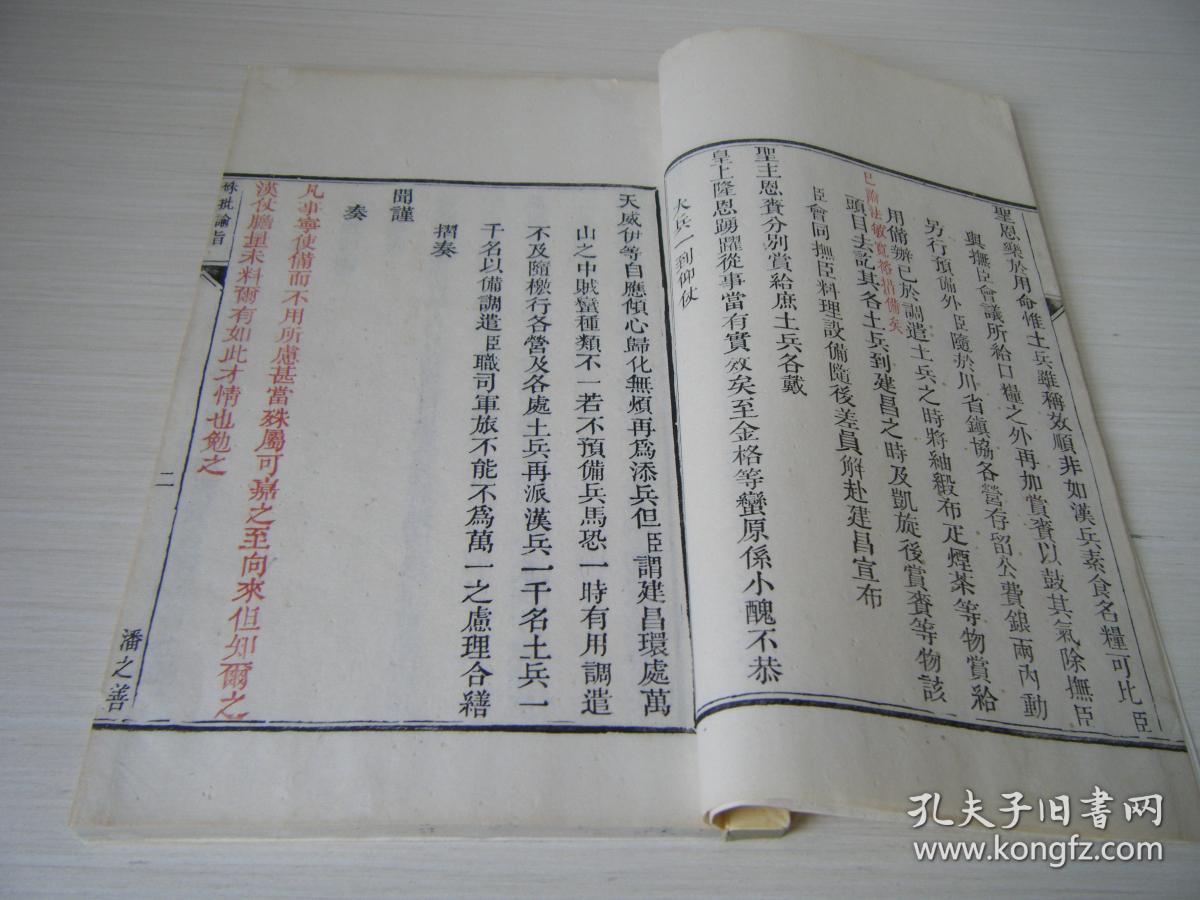 聖恩樂於用命惟土兵雖稱效順非如漢兵素食名糧可比臣
與撫臣會議所給口糧之外再加賞賚以鼓其氣除撫臣
另行預備外臣隨於川省鎮協各營存留公費銀兩內動
用備辦已於調遣土兵之時將紬緞布疋煙茶等物賞給
已諭法敏寬裕措備矣
頭目去訖其各土兵到建昌之時及凱旋後賞賚等物該
臣會同撫臣料理設備隨後差員解赴建昌宣布
聖主恩賚分別賞給庶土兵各戴
皇上隆恩踴躍從事當有實效矣至金格等蠻原係小醜不恭
大兵一到仰仗
天威伊等自應傾心歸化無煩再為添兵但臣謂建昌環處萬
山之中賊蠻種類不一若不預備兵馬恐一時有用調遣
不及隨檄行各營及各處土兵再派漢兵一千名土兵一
千名以備調遣臣職司軍旅不能不為萬一之慮理合繕
摺奏
聞謹
奏
凡事寧使備而不用所慮甚當殊屬可嘉之至向來但知爾之
漢仗膽量未料爾有如此才情也勉之
硃批諭旨
二
潘之善
孔夫子旧书网
www.kongfz.com